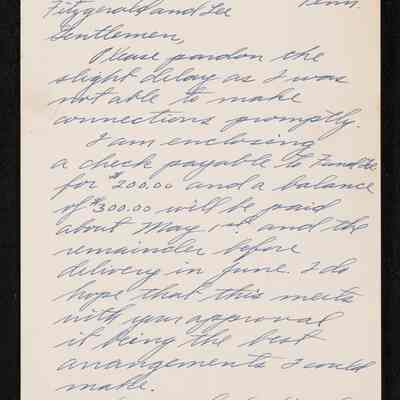 Fitzgerald and Lee Penn.
Gentlemen,
Please pardon the
slight delay as I was
not able to make
connections promptly.
I am enclosing
a check payable to
for $200.00 and a balance
of $300.00 will be paid
about May 1st and the
remainder before
delivery in June. I do
hope that this meets
with your approval
it being the best
arrangements I could
make.